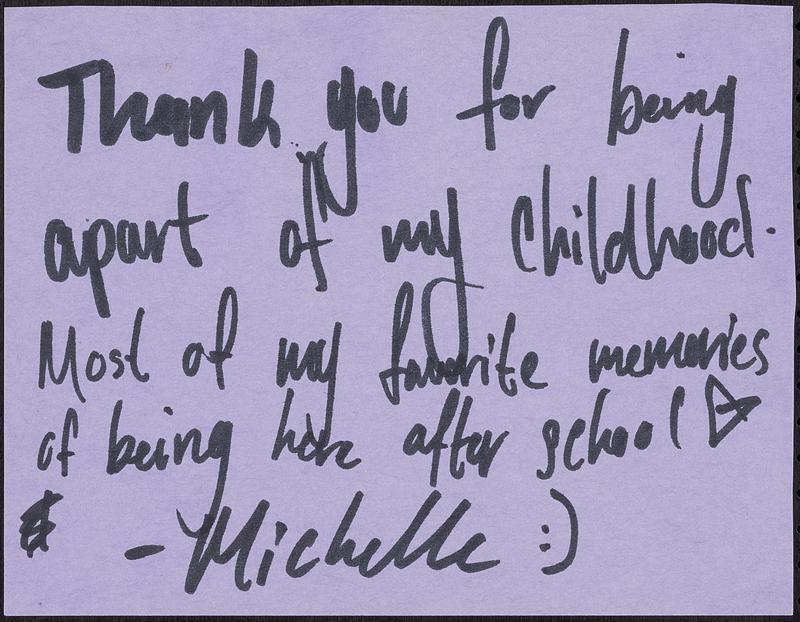 Thank you for being
apart of my childhood.
Most of my favorite memories
of being here after school
- Michelle :)